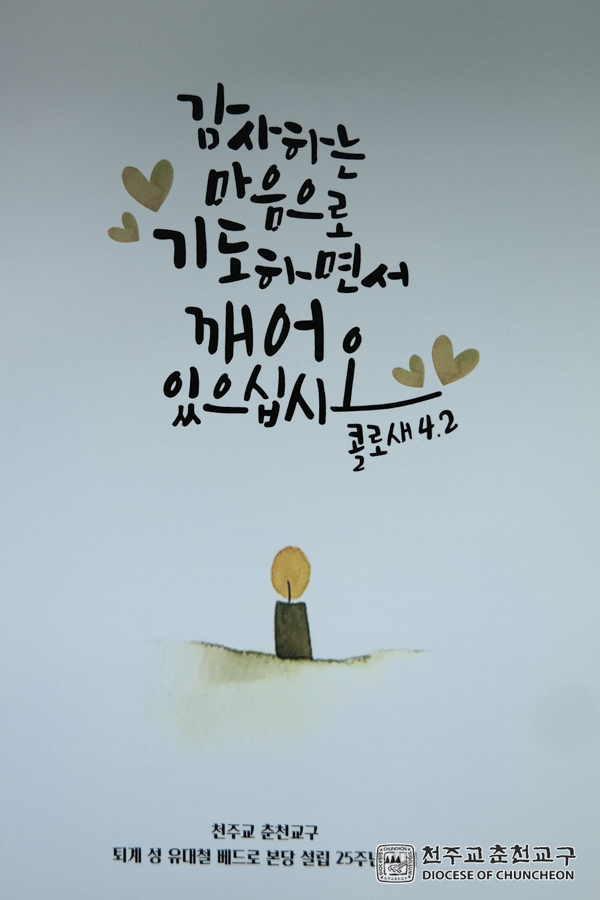 감사하는
마음으로
기도하면서
깨어
있으십시오
콜로새 4.2
천주교 춘천교구
퇴계 성 유대철 베드로 본당 설립 25주년
CHUNCHEON
천주교춘천교구
DIOCESE OF CHUNCHEON